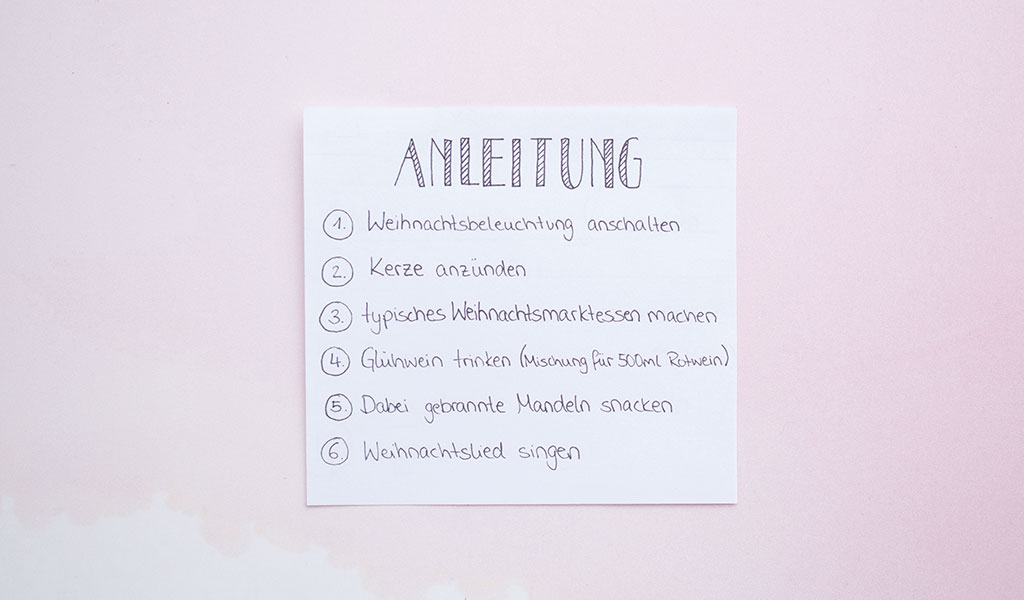 ANLEITUNG
1. Weihnachtsbeleuchtung anschalten
2. Kerze anzünden
3. typisches Weihnachtsmarktessen machen
4. Glühwein trinken (Mischung für 500ml Rotwein)
5. Dabei gebrannte Mandeln snacken
6. Weihnachtslied singen